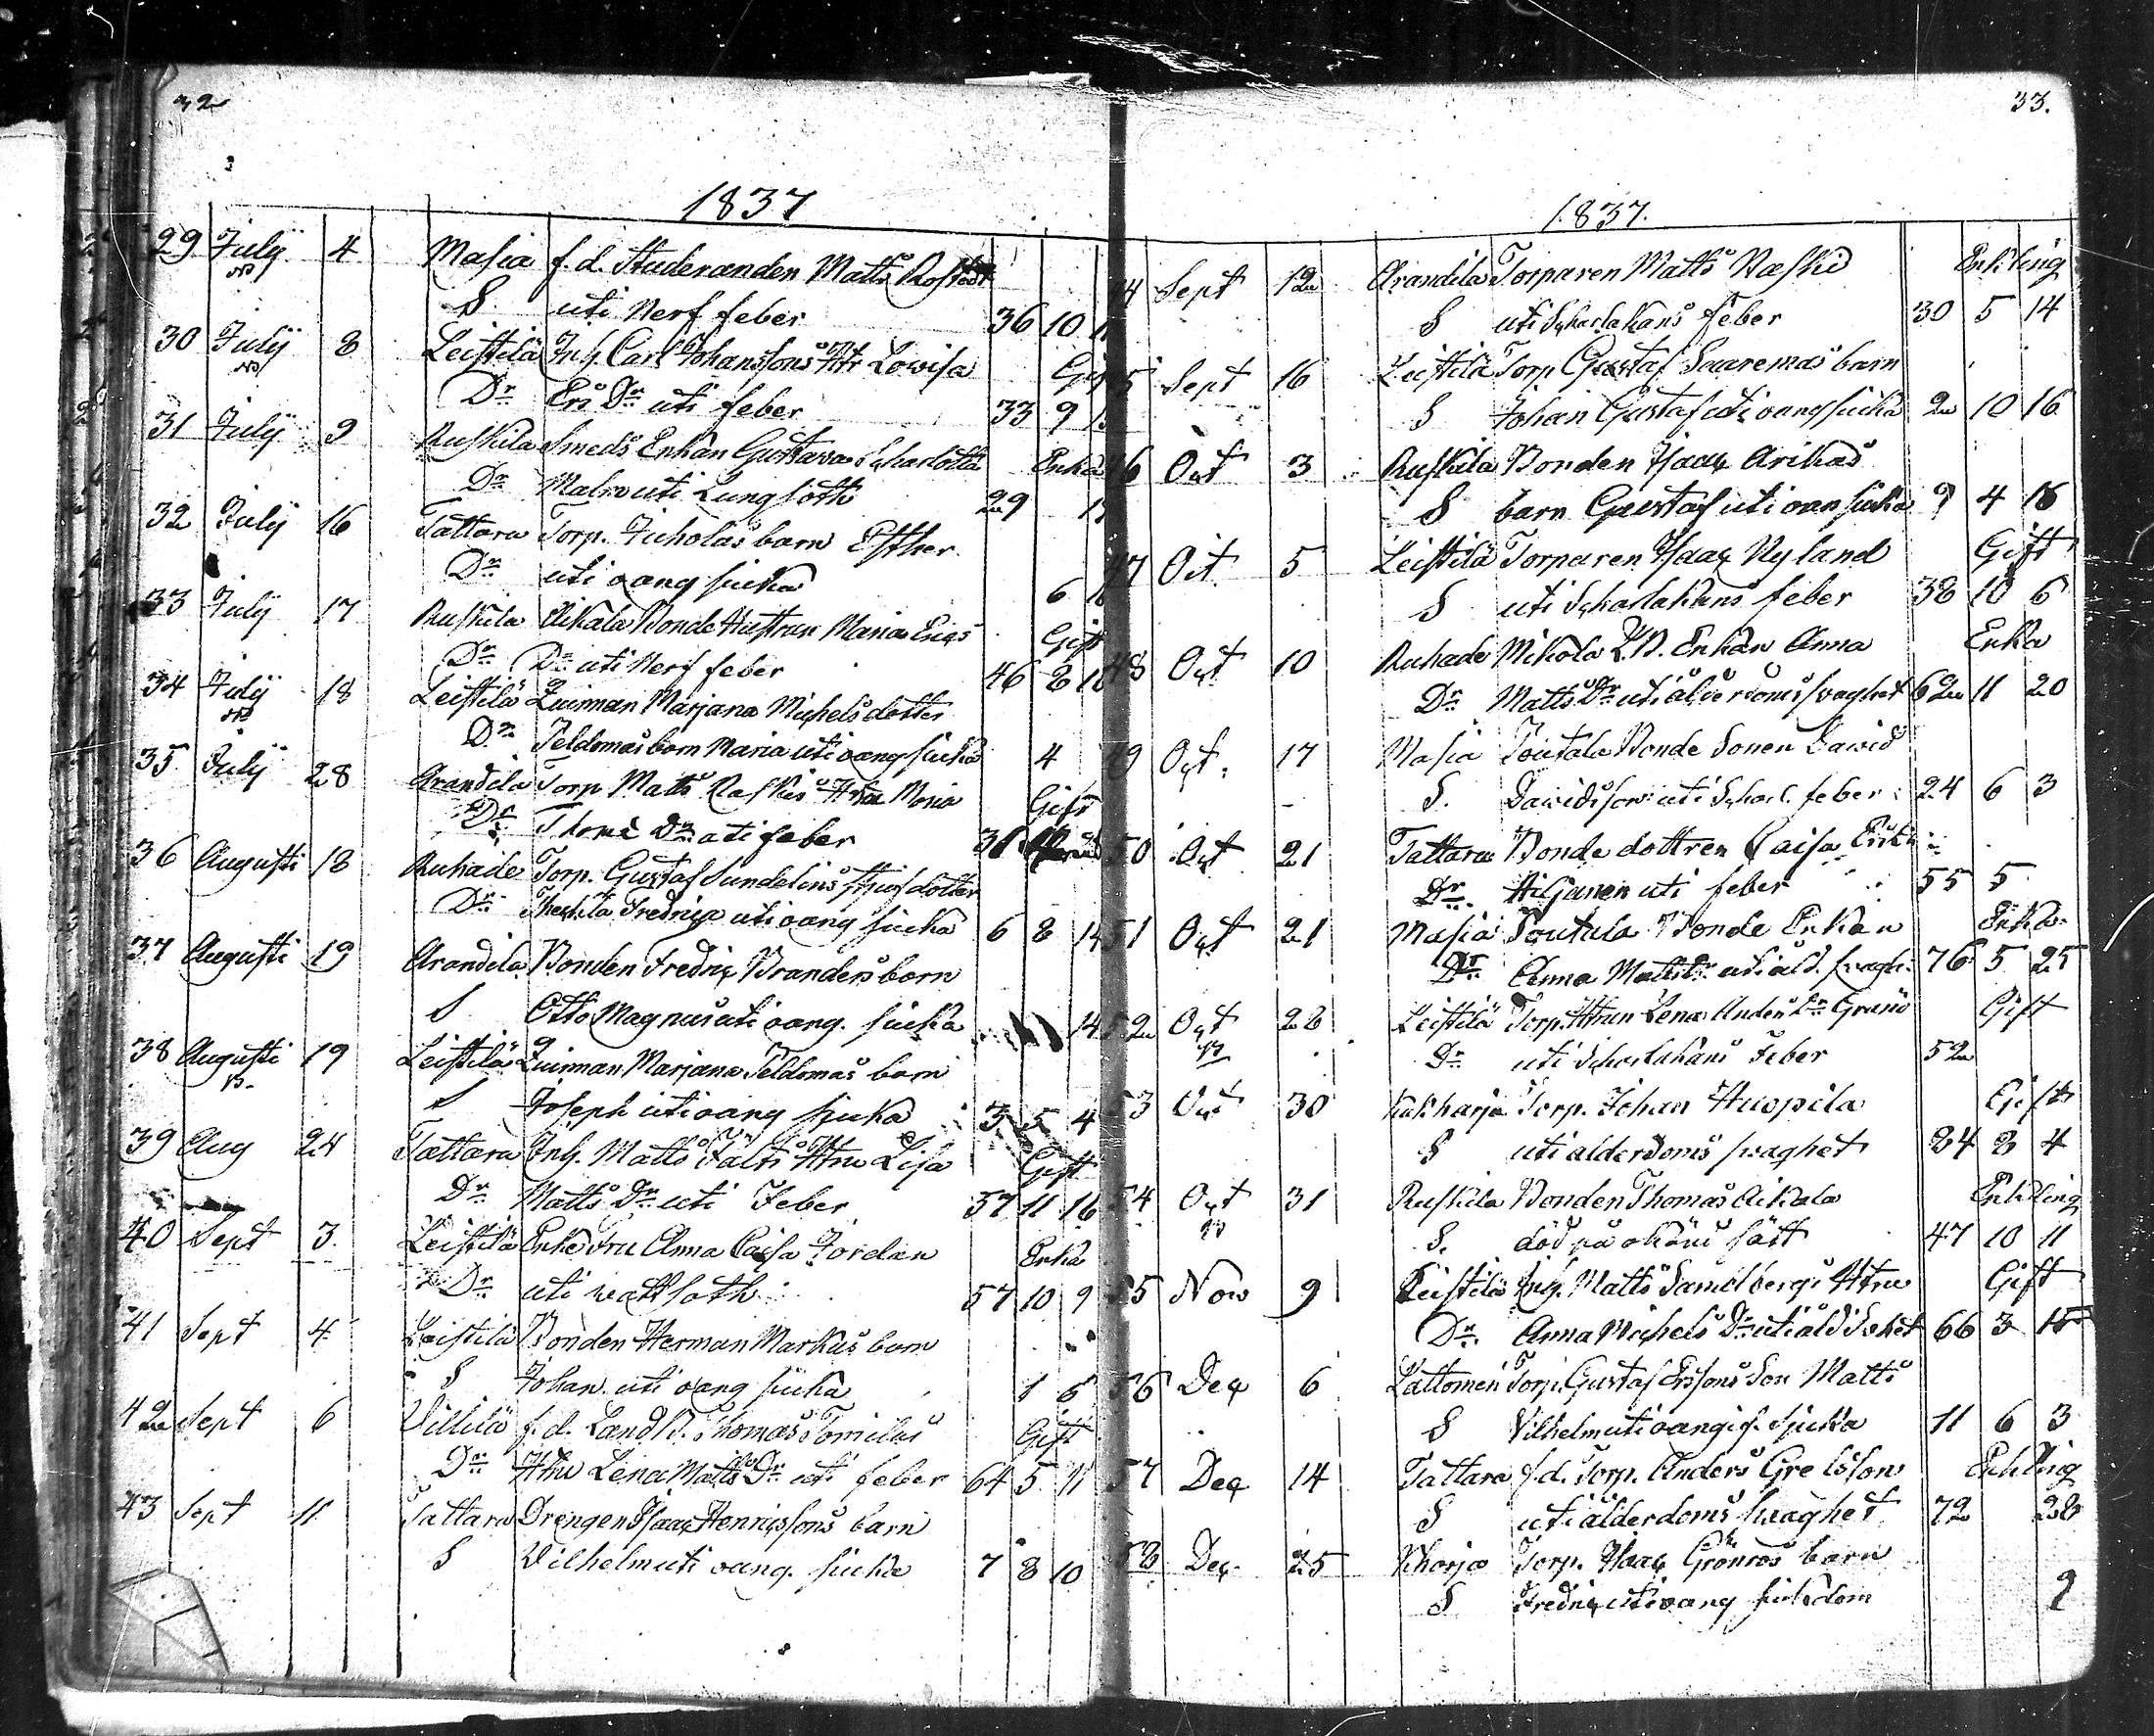 32
1837
29 July 4 Masia f. d. Studeranden Matts
S uti Nerf feber 36 10
30 July 8 Leistilä Inh. Carl Johanssons Hstr Lowisa Gift
Dr Ers Dr uti feber 33 9
31 July 9 Ruskila Smeds Enkan Gustava Scharlotta Enka
Dr Malm uti Lungsoth 29
32 July 16 Tattara Torp. Juholas barn Esther
Dr uti oang siuka 6
33 July 17 Ruskila Aikala Bonde Hustrun Maria Gift
Dr Dr uti Nerf feber 46 8
34 July 18 Leistilä Quinnan Marjana Michelsdotter
Dr Teldomas barn Maria uti oang siuka 4
35 July 28 Arandila Torp Matts Raskis Hstru Maria Gift
Dr Thome Dr uti feber
36 Augusti 18 Ruhade Torp. Gustaf Sundelins stjufdotter
Dr Fredrica uti oang siuka 6 8 14
37 Augusti 19 Arandila Bonden Fredric Branders barn
S Otto Magnus uti oang. siuka 14
38 Augusti 19 Leistilä Quinnan Marjana Teldomas barn
S Joseph uti oang siuka 3 5 4
39 Aug 24 Tattara Inh. Matts Fälts Hstru Lisa Gift
Dr Matts Dr uti Feber 57 11 16
40 Sept 3 Leistilä Enke Fru Anna Caisa Jordan Enka
Dr uti wattsoth 57 10 9
41 Sept 4 Leistilä Bonden Herman Markus barn
S Johan uti oang siuka 1 6
42 Sept 6 Villilä f. d. Land B. Thomas Tomilas Gift
Dr Hstru Lena Matts Dr uti feber 64 5 11
43 Sept 11 Tattara Drengen Isaac Henricssons barn
S Vilhelm uti oang. siuka 7 8 10
33.
1837.
44 Sept 12 Arandila Torparen Matts Raski Enkling
S uti Scharlakans feber 30 5 14
45 Sept 16 Leistilä Torp Gustaf Saaremas barn
S Johan Gustaf uti oang siuka 2 10 16
46 Oct 3 Ruskila Bonden Isaac Arikas
S barn Gustaf uti oan siuka 9 4 16
47 Oct 5 Leistilä Torparen Isaac Nyland Gift
S uti Scharlakans feber 38 10 6
48 Oct 10 Ruhade Mikola Enkan Anna Enka
Dr Matts Dr uti ålderdoms swaghet 62 11 20
49 Oct. 17 Masia Toutala Bonde Sonen David
S. Davidsson uti Scharl. feber 24 6 3
50 Oct 21 Tattara Bonde dottren Caisa
Dr. Hiljanen uti feber 55 5
51 Oct 21 Masia Toutala Bonde Enkan Enka
Dr Anna Matts Dr uti åld. swagh. 76 5 25
52 Oct 28 Leistilä Torp. Hstrun Lena Anders Dr Gift
Dr uti Scharlakans Feber 52
53 Oct 30 Kukharja Torp. Johan Huopila Gift
S uti alderdoms swaghet 84 8 4
54 Oct 31 Ruskila Bonden Thomas Aikala Enkling
S. död på okänd sätt 47 10 11
55 Nov 9 Leistilä Inh. Matts Sandbergs Hstru Gift
Dr. Anna Michels Dr uti åld 66 3 15
56 Dec 6 Lattomeri Torp. Gustaf Erssons Son Matts
S Vilhelm uti oangif. Sjucka 11 6 3
57 Dec 14 Tattara f. d. Torp. Anders Grelsson Enkling
S uti ålderdoms swaghet 72 28
58 Dec 25 Torp. Isaac Grönros barn
S Fredric uti oang siukdom 2